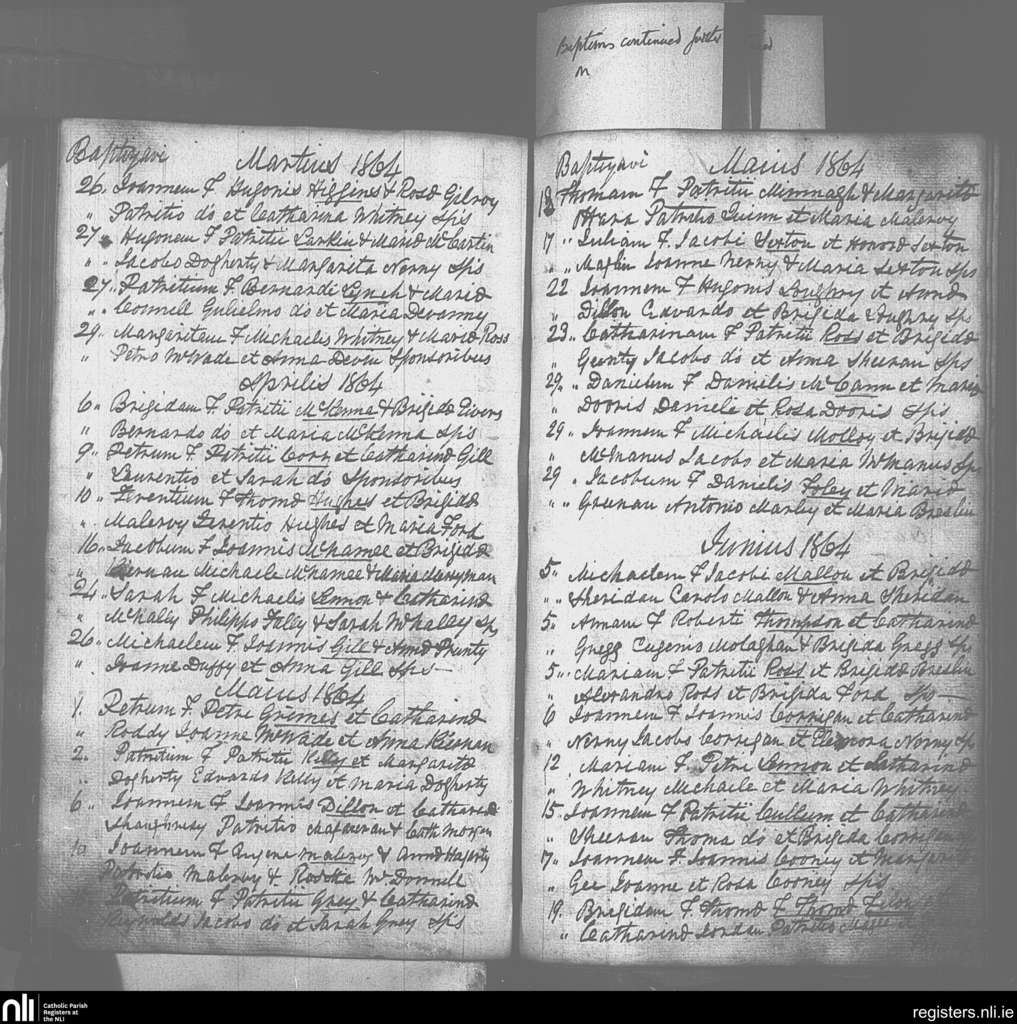 Baptisms continued further
on
Baptizavi Martius 1864
26. Joannem F Hugonis Higgins & Rosæ Gilroy
" Patritio do et Catharina Whitney Sps
27 " Hugonem F Patritii Larkin & Mariæ McCartin
" " Jacobo Dogherty & Margarita Nerny Sps
27 " Patritium F Bernardi Lynch & Mariæ
" " Connell Gulielmo do et Maria Devanny
29. Margaritam F Michaelis Whitney & Mariæ Ross
" Petro McWade et Anna Sponsoribus
Aprilis 1864
6 " Brigidam F Patritii McKenna & Brigidæ Givers
" Bernardo do et Maria McKenna Sps
9 " Petrum F Patritii Corr et Catharinæ Gill
" Laurentio et Sarah do Sponsoribus
10 " Terentium F Thomæ Hughes et Brigidæ
" Malervy Terentio Hughes et Maria Ford
16 " Jacobum F Joannis McNamee et Brigidæ
" Kiernan Michaele McNamee & Maria Merryman
24 " Sarah F Michaelis Lennon & Catharinæ
" McNally Philippo Fally & Sarah McNalley Sps
26 " Michaelem F Joannis Gill & Annæ Prunty
" Joanne Duffy et Anna Gill Sps
Maius 1864
1. Petrum F Petri Grimes et Catharinæ
" Roddy Joanne McWade et Anna Kiernan
2. Patritium F Patritii Kelly et Margaritæ
" Dogherty Edwardo Kelly et Maria Dogherty
6 " Joannem F Joannis Dillon et Catharinæ
Shaughnesy Patritio & Cath Morgan
10 Joannem F Eugene Malervy & Annæ Hagerty
Patritio Malervy & Rosetta McDonnell
Patritium F Patritii Grey & Catharinæ
Reynolds Jacobo do et Sarah Grey Sps
Baptizavi Maius 1864
Thomam F Patritii Mimnagh & Margaritæ
O'Hara Patritio Quinn et Maria Malervy
17 " Juliam F. Jacobi Sexton et Honoræ Sexton
" " Joanne Nerny & Maria Sexton Sps
22 Joannem F Hugonis Loughry et Annæ
" Dillon Edvardo et Brigida Hughry Sps
23 " Catharinam F Patritii Ross et Brigidæ
" Geenty Jacobo do et Anna Sheeran Sps
29 " " Danielem F Danielis McCann et Mariæ
" Dooris Daniele et Rosa Dooris Sps
29 " Joannem F Michaelis Molloy et Brigidæ
" McManus Jacobo et Maria McManus Sps
29 " Jacobum F Danielis Foley et Mariæ
" " Greenan Antonio Marley et Maria Breslin
Junius 1864
5 " Michaelem F Jacobi Mallon et Brigidæ
" " Sheridan Carolo Mallon & Anna Sheridan
5 " Annam F Roberti Thompson et Catharinæ
" Gregg Eugenio Molaghan & Brigida Gregg Sps
5 " Mariam F Patritii Ross et Brigidæ Breslin
" Alexandro Ross et Brigida Ford Sps
6 Joannem F Joannis Corrigan et Catharinæ
" Nerny Jacobo Corrigan et Elenora Nerny Sps
12 . Mariam F Petri Lennon et Catharinæ
" Whitney Michaele et Maria Whitney
15 Joannem F Patritii Cullum et Catharinæ
" Sheeran Thoma do et Brigida Corrigan
17 " Joannem F Joannis Cooney et Margaritæ
" Gee Joanne et Rosa Cooney Sps
19. Brigidam F Thomæ F Thomæ
" Catharinæ Jordan Patritio
nli Catholic Parish
Registers at
the NLI
registers.nli.ie